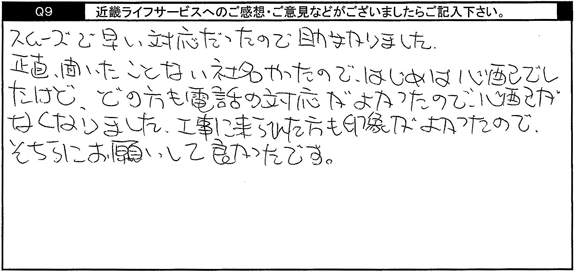 Q9 近畿ライフサービスへのご感想・ご意見などがございましたらご記入下さい。
スムーズで早い対応だったので助かりました。
正直、聞いたことない社名だったので、はじめは心配でし
たけど、どの方も電話の対応がよかったので、心配が
なくなりました。工事に来られた方も印象がよかったので、
そちらにお願いして良かったです。